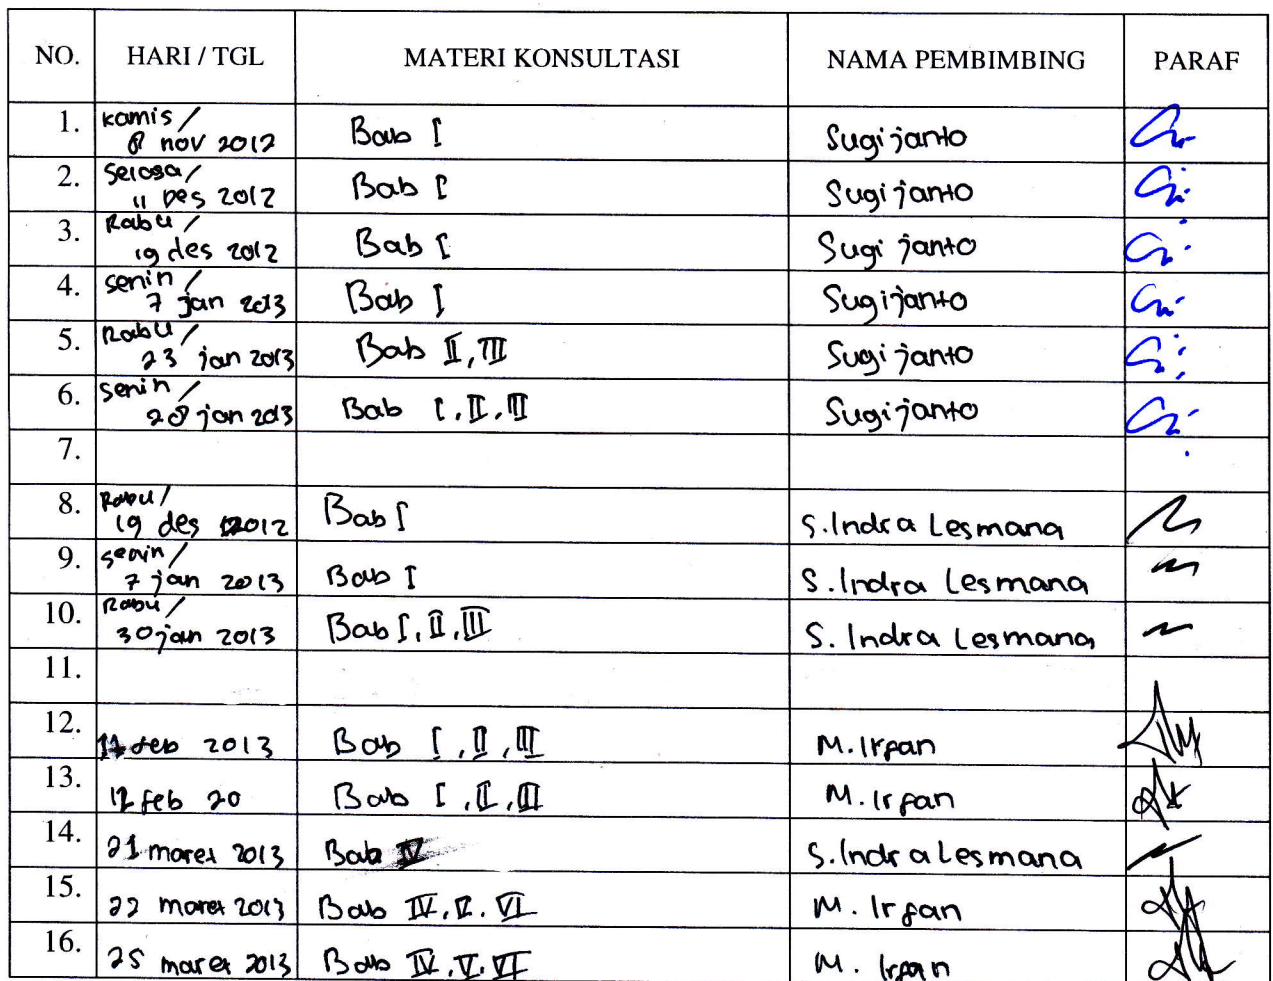 NO. HARI / TGL MATERI KONSULTASI NAMA PEMBIMBING PARAF
1. kamis / 8 nov 2012 Bab I Sugijanto
2. Selasa / 11 Des 2012 Bab I Sugijanto
3. Rabu / 19 des 2012 Bab I Sugijanto
4. senin / 7 jan 2013 Bab I Sugijanto
5. Rabu / 23 jan 2013 Bab II, III Sugijanto
6. Senin / 28 jan 2013 Bab I, II, III Sugijanto
7.
8. Rabu / 19 des 2012 Bab I S. Indra Lesmana
9. senin / 7 jan 2013 Bab I S. Indra Lesmana
10. Rabu / 30 jan 2013 Bab I, II, III S. Indra Lesmana
11.
12. feb 2013 Bab I, II, III M. Irfan
13. 12 feb 20 Bab I, II, III M. Irfan
14. 21 maret 2013 Bab IV S. Indra Lesmana
15. 22 maret 2013 Bab IV, V. VI M. Irfan
16. 25 maret 2013 Bab IV, V. VI M. Irfan